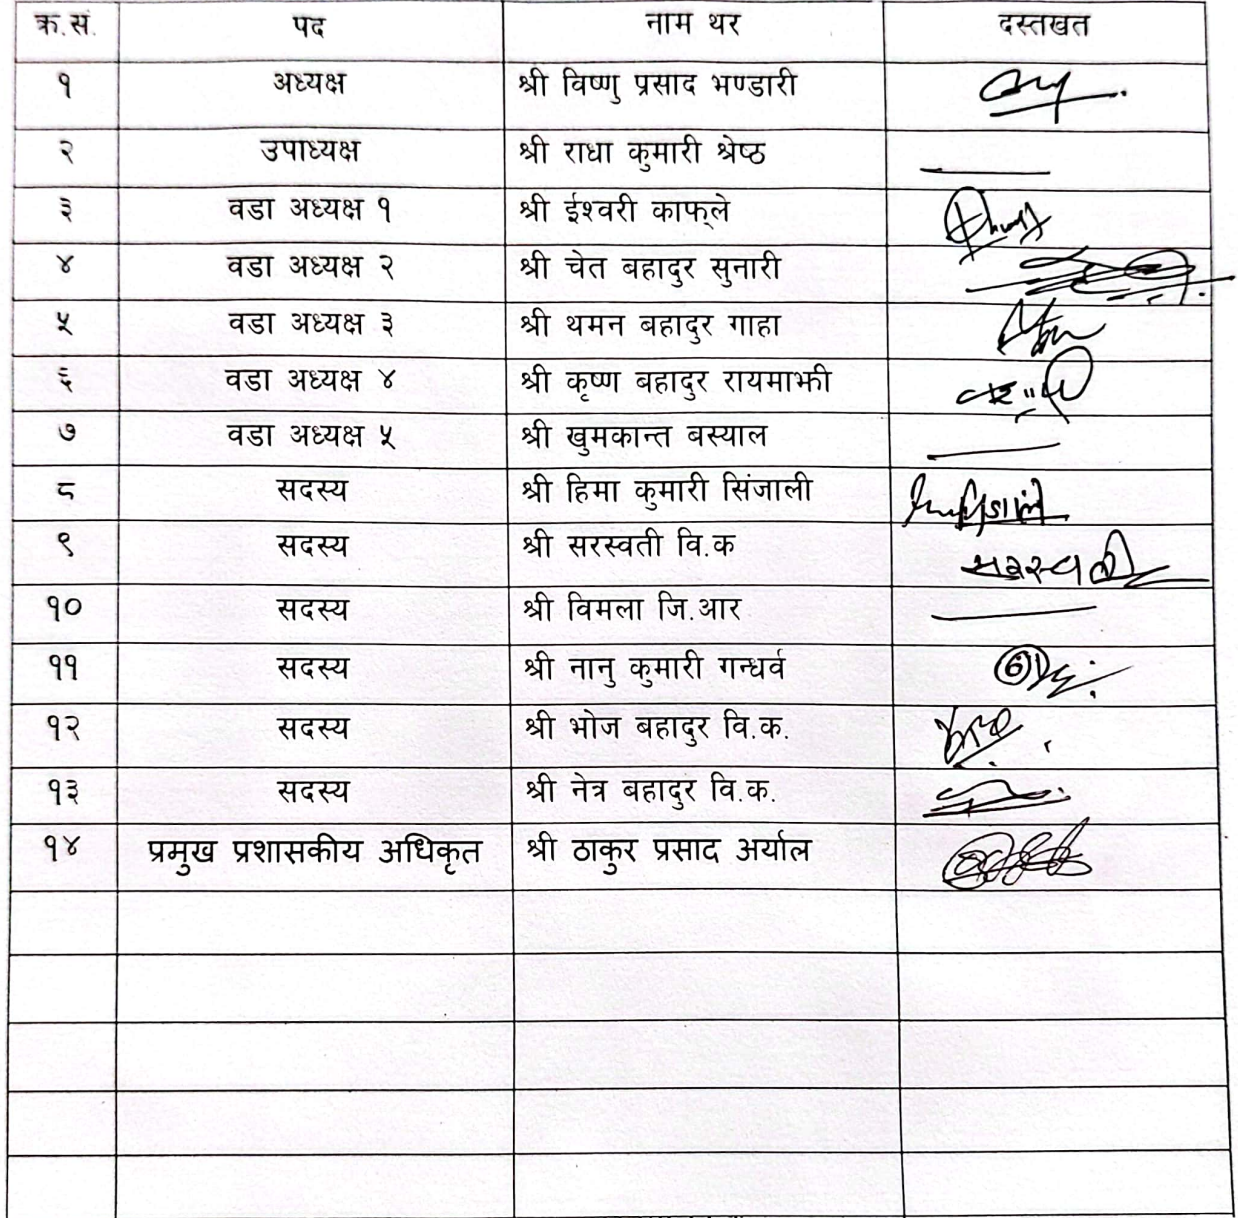 क्र.सं. पद नाम थर दस्तखत
१ अध्यक्ष श्री विष्णु प्रसाद भण्डारी
२ उपाध्यक्ष श्री राधा कुमारी श्रेष्ठ
३ वडा अध्यक्ष १ श्री ईश्वरी काफ्ले
४ वडा अध्यक्ष २ श्री चेत बहादुर सुनारी
५ वडा अध्यक्ष ३ श्री थमन बहादुर गाहा
६ वडा अध्यक्ष ४ श्री कृष्ण बहादुर रायमाझी
७ वडा अध्यक्ष ५ श्री खुमकान्त बस्याल
८ सदस्य श्री हिमा कुमारी सिंजाली
९ सदस्य श्री सरस्वती वि.क सरस्वती
१० सदस्य श्री विमला जि.आर
११ सदस्य श्री नानु कुमारी गन्धर्व
१२ सदस्य श्री भोज बहादुर वि.क.
१३ सदस्य श्री नेत्र बहादुर वि.क.
१४ प्रमुख प्रशासकीय अधिकृत श्री ठाकुर प्रसाद अर्याल